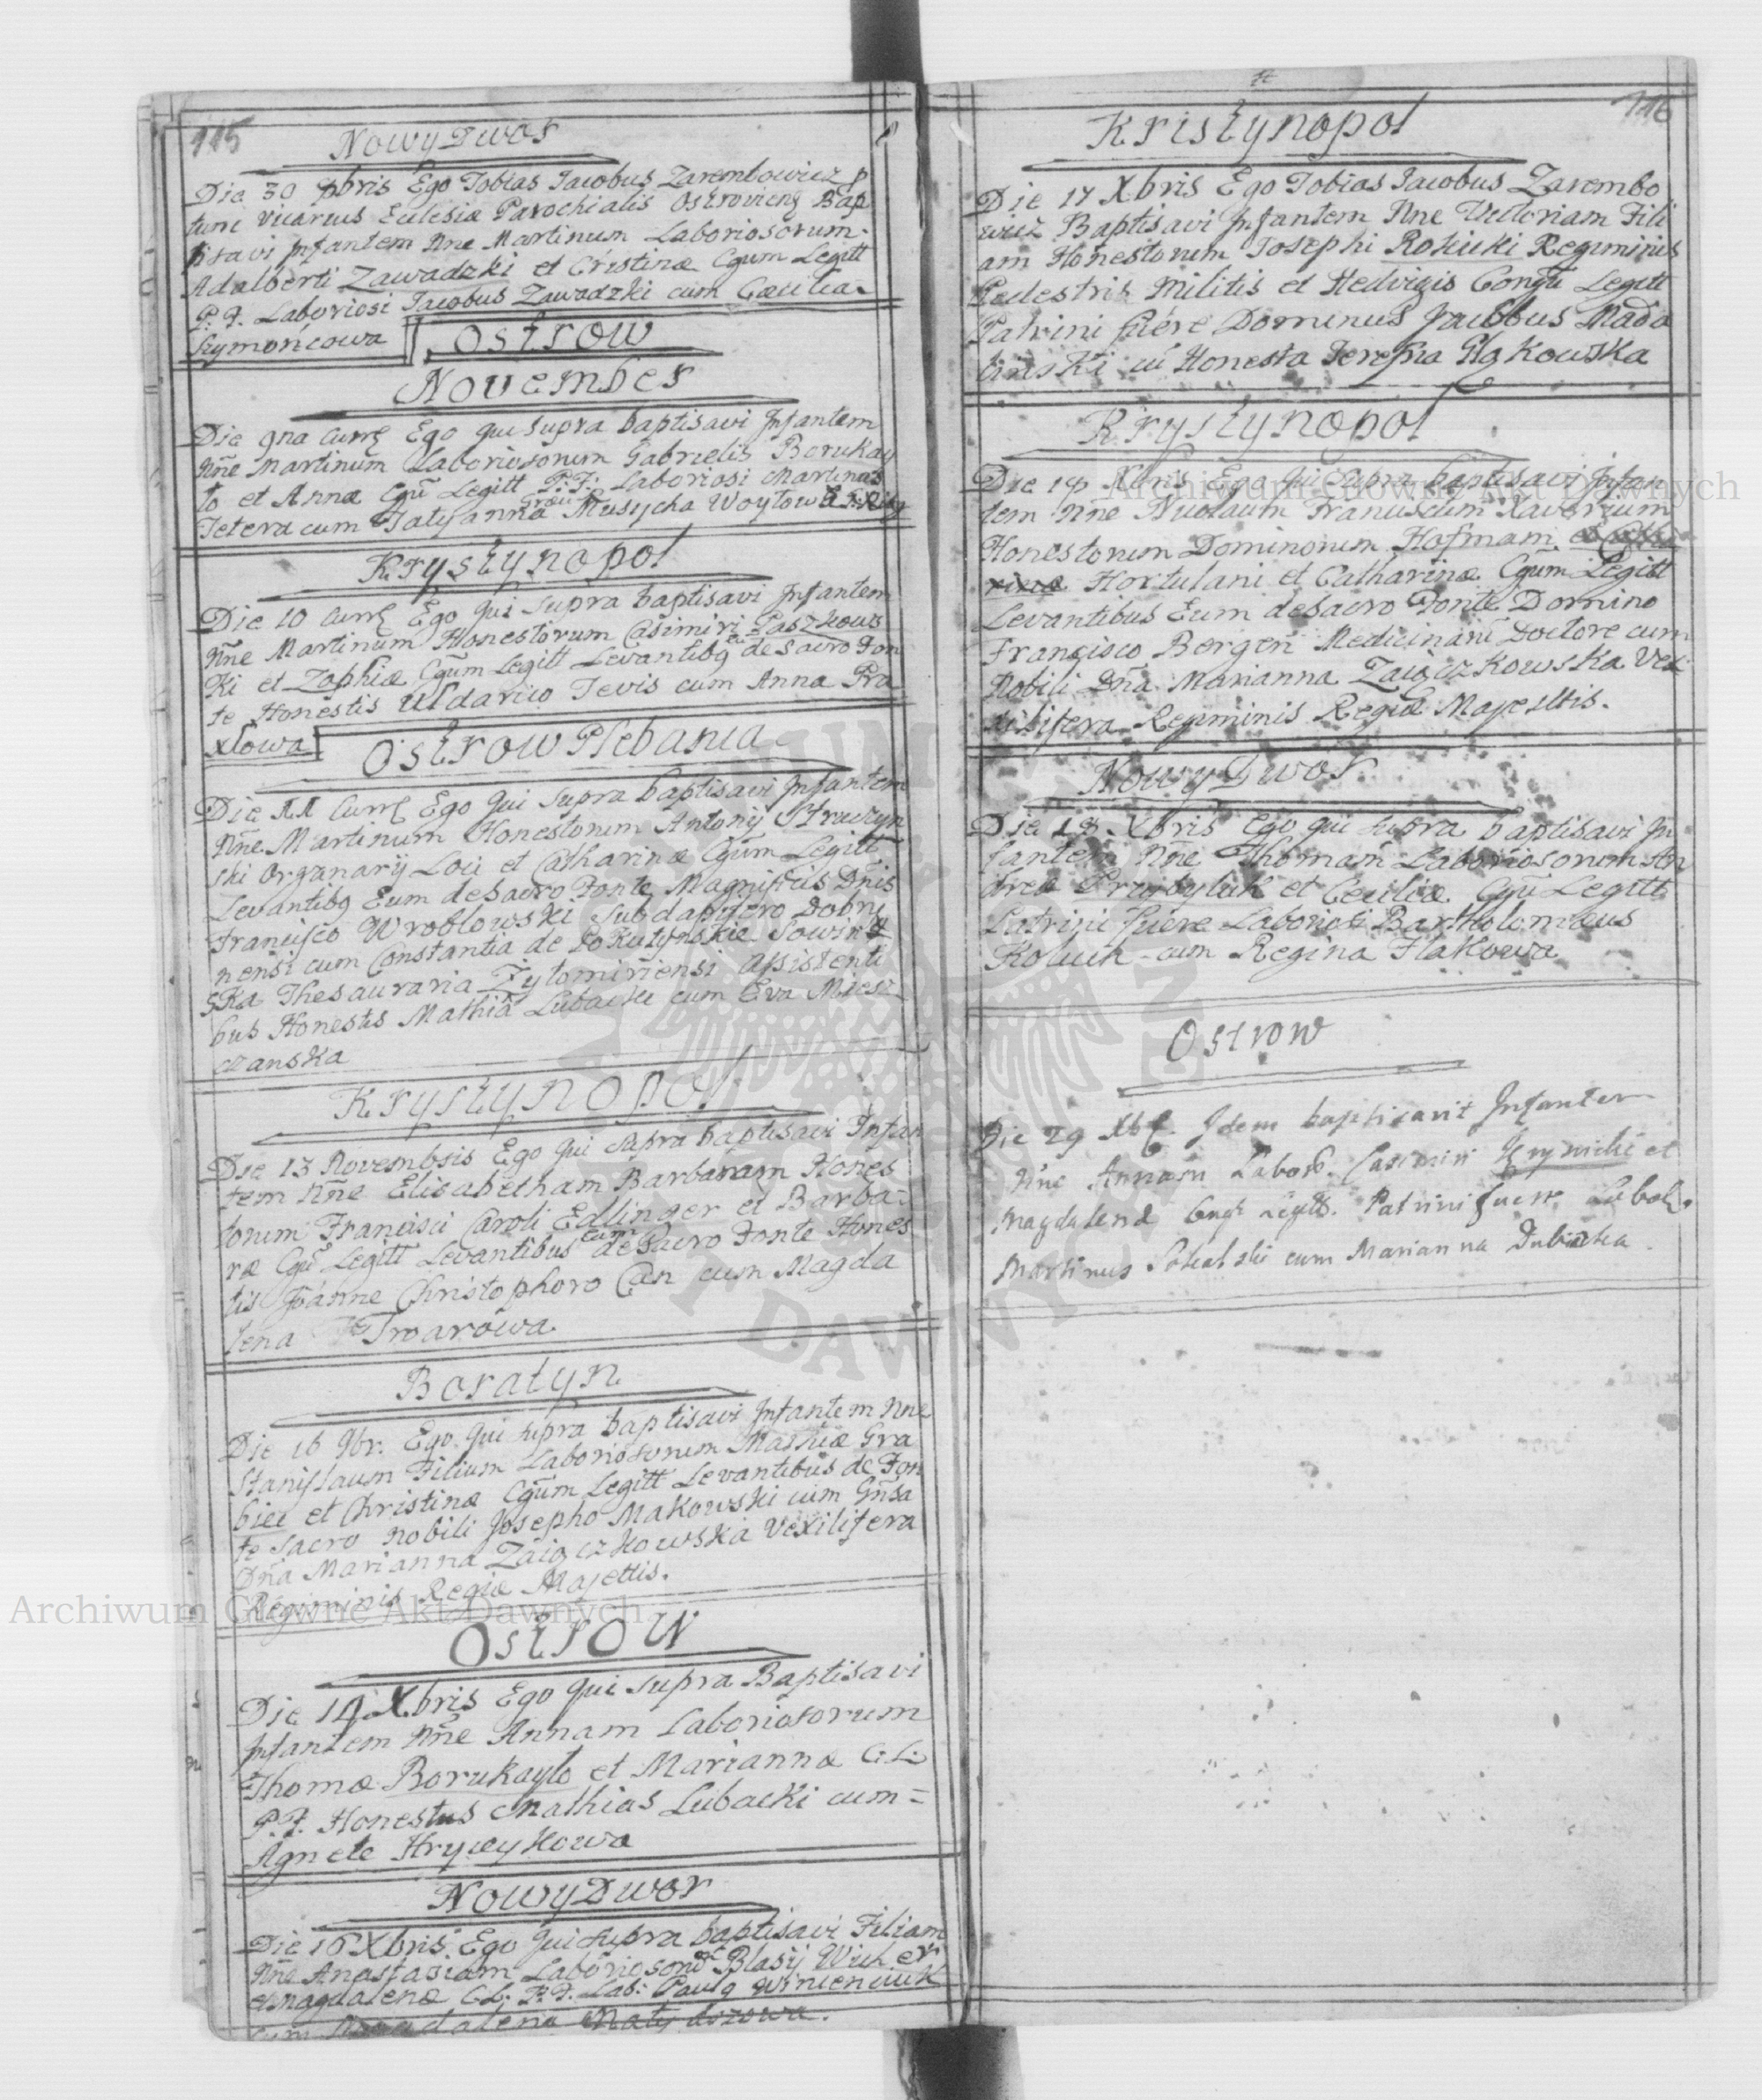 115
Nowy Dwor
Die 30 9bris Ego Tobias Jacobus Zarembowicz p
tunc Vicarius Eclesiæ Parochialis Ostroviens Bap
tisavi Infantem Nne Martinum Laboriosorum
Adalberti Zawadzki et Cristinæ Cgum Legitt
P. F. Laboriosi Jacobus Zawadzki cum Cæcilia
Szymońcowa
Ostrow
November
Die 9na Curre Ego qui supra baptisavi Infantem
Nne Martinum Laboriosorum Gabrielis Borukay
ło et Annæ Cgu Legitt P: F: Laboriosi Martinus
Tetera cum Tatyanna Musycha Woytowa
Krystynopol
Die 10 Curre Ego qui supra baptisavi Infantem
Nne Martinum Honestorum Casimiri Paszkows
Ki et Zophiæ Cgum Legitt Levantibq eu de Sacro Fon
te Honestis Uldarico Tevis cum Anna Pra
xlowa
Ostrow Plebania
Die 11 Curre Ego Qui Supra baptisavi Infantem
Nne Martinum Honestorum Antonij Struszyn
ski Organarij Loci et Catharinæ Cgum Legitt
Levantibq Eum de Sacro Fonte Magnificis Dnis
Francisco Wroblowski Subdapifero Dobrzy
nensi cum Constantia de Pokutynskie Sowin
ska Thesauraria Żytomiriensi Assistenti
bus Honestis Mathia Lubacki cum Eva Miesz
czanska
Krystynopol
Die 13 Novembris Ego Qui Supra baptisavi Infan
tem Nne Elisabetham Barbaram Hones
torum Francisci Caroli Edlinger et Barba-
ræ Cgu Legitt Levantibus eam de Sacro Fonte Hones
tis Joanne Christophoro Can cum Magda
lena Twarowa
Boratyn
Die 16 9br. Ego Qui supra baptisavi Infantem Nne
Stanislaum Filium Laboriosorum Mathiæ Gra
biec et Christinæ Cgum Legitt Levantibus de Fon
te Sacro Nobili Josepho Makowski cum Gnsa
Dna Marianna Zaiączkowska Vexilifera
Regiminis Regiæ Majettis.
Ostrow
Die 14 Xbris Ego Qui supra Baptisavi
Infantem Nne Annam Laboriosorum
Thomæ Borukayło et Mariannæ C: L:
P. F. Honestus Mathias Lubacki cum=
Agnete Hrycykowa
Nowy Dwor
Die 16 Xbris Ego Qui supra baptisavi Filiam
Nne Anastasiam Laboriosor Blasij Wich
et Magdalenæ C.L. P.F. Lab: Paulq Winienciuk
cum Magdalena
116
Kristynopol
Die 17 Xbris Ego Tobias Jacobus Zarembo
wicz Baptisavi Infantem Nne Victoriam Fili
am Honestorum Josephi Rokicki Regiminis
Pedestris Militis et Hedvigis Congu Legitt
Patrini fuere Dominus Jacobus Mada
linski cu Honesta Teresia
Krystynopol
Die 19 Xbris Ego Qui Supra baptisavi Infan
tem Nne Nicolaum Franciscum Xaverium
Honestorum Dominorum Hofmam
Hortulani et Catharinæ Cgum Legitt
Levantibus Eum de Sacro Fonte Domino
Francisco Bergen Medicinani Doctore cum
Nobili Dna Marianna Zaiączkowska Vex
illifera Regiminis Regiæ Majesttis.
Nowy Dwor
Die 18 Xbris Ego qui supra baptisavi In
fantem Nne Thomam Laboriosorum An
dreæ Przybyluk et Ceciliæ Cgu Legitt
Patrini fuere Laboriosi Bartholomeus
Kociuk cum Regina Flakowa
Ostrow
Die 29 Xbr. Idem baptisavit Infantem
Nne Annam Labor. Casimiri et
Magdalenæ Legtt. Patrini fuere Labor.
Martinus Sokalski cum Marianna Dubicka
Archiwum Główne Akt Dawnych
Archiwum Główne Akt Dawnych